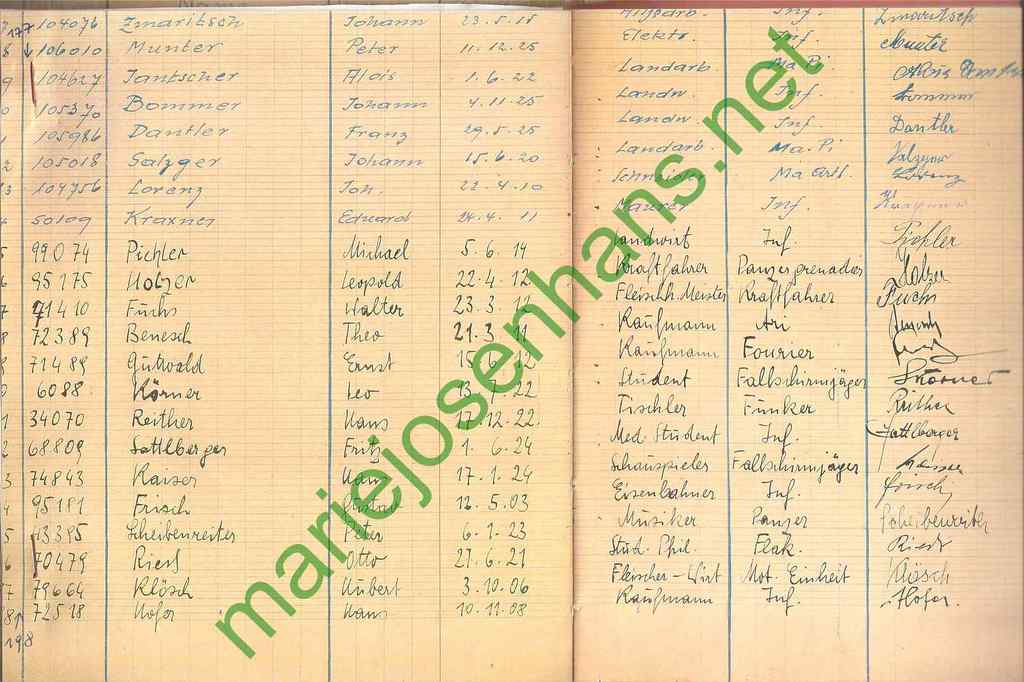 177 104076 Zmaritsch Johann Inf. Zmaritsch
8 106010 Munter Peter 11.12.25 Elektr. Inf. Munter
9 104627 Jantscher Alois 1.6.22 Landarb. Ma. Pi.
0 105370 Bommer Johann 4.11.25 Landw. Inf. Bommer
1 105986 Dantler Franz 29.5.25 Landw. Inf. Dantler
2 105018 Salzger Johann 15.6.20 Landarb. Ma. Pi
3 104756 Lorenz Joh. 22.4.10 Schneider Ma Artl. Lorenz
50109 Kraxner Eduard 24.4.11 Maurer Inf.
5 99074 Pichler Michael 5.6.14 Landwirt Inf. Pichler
95175 Holzer Leopold 22.4.12 Kraftfahrer Panzergrenadier Holzer
7 71410 Fuchs Walter 23.3. Fleischh. Meister Kraftfahrer Fuchs
8 72389 Benesch Theo 21.3.11 Kaufmann Ari
71489 Gutwald Ernst 12 Kaufmann Fourier
0 6088 Körner Leo 22 Student Fallschirmjäger Körner
1 34070 Reither Hans 17.12.22. Tischler Funker Reither
2 68809 Sattlberger Fritz 1.6.24 Med. Student Inf. Sattlberger
3 74843 Kaiser Hans 17.1.24 Schauspieler Fallschirmjäger
95181 Frisch 12.5.03 Eisenbahner Inf. Frisch
5 43395 Scheibenreiter Peter 6.1.23 Musiker Panzer Scheibenreiter
6 70479 Riedl Otto 27.6.21 Stud. Phil. Flak. Riedl
7 79664 Klösch Hubert 3.10.06 Fleischer – Wirt Mot. Einheit Klösch
8 72518 Hofer Hans 10.11.08 Kaufmann Inf. Hofer.
198
mariejosenhans.net